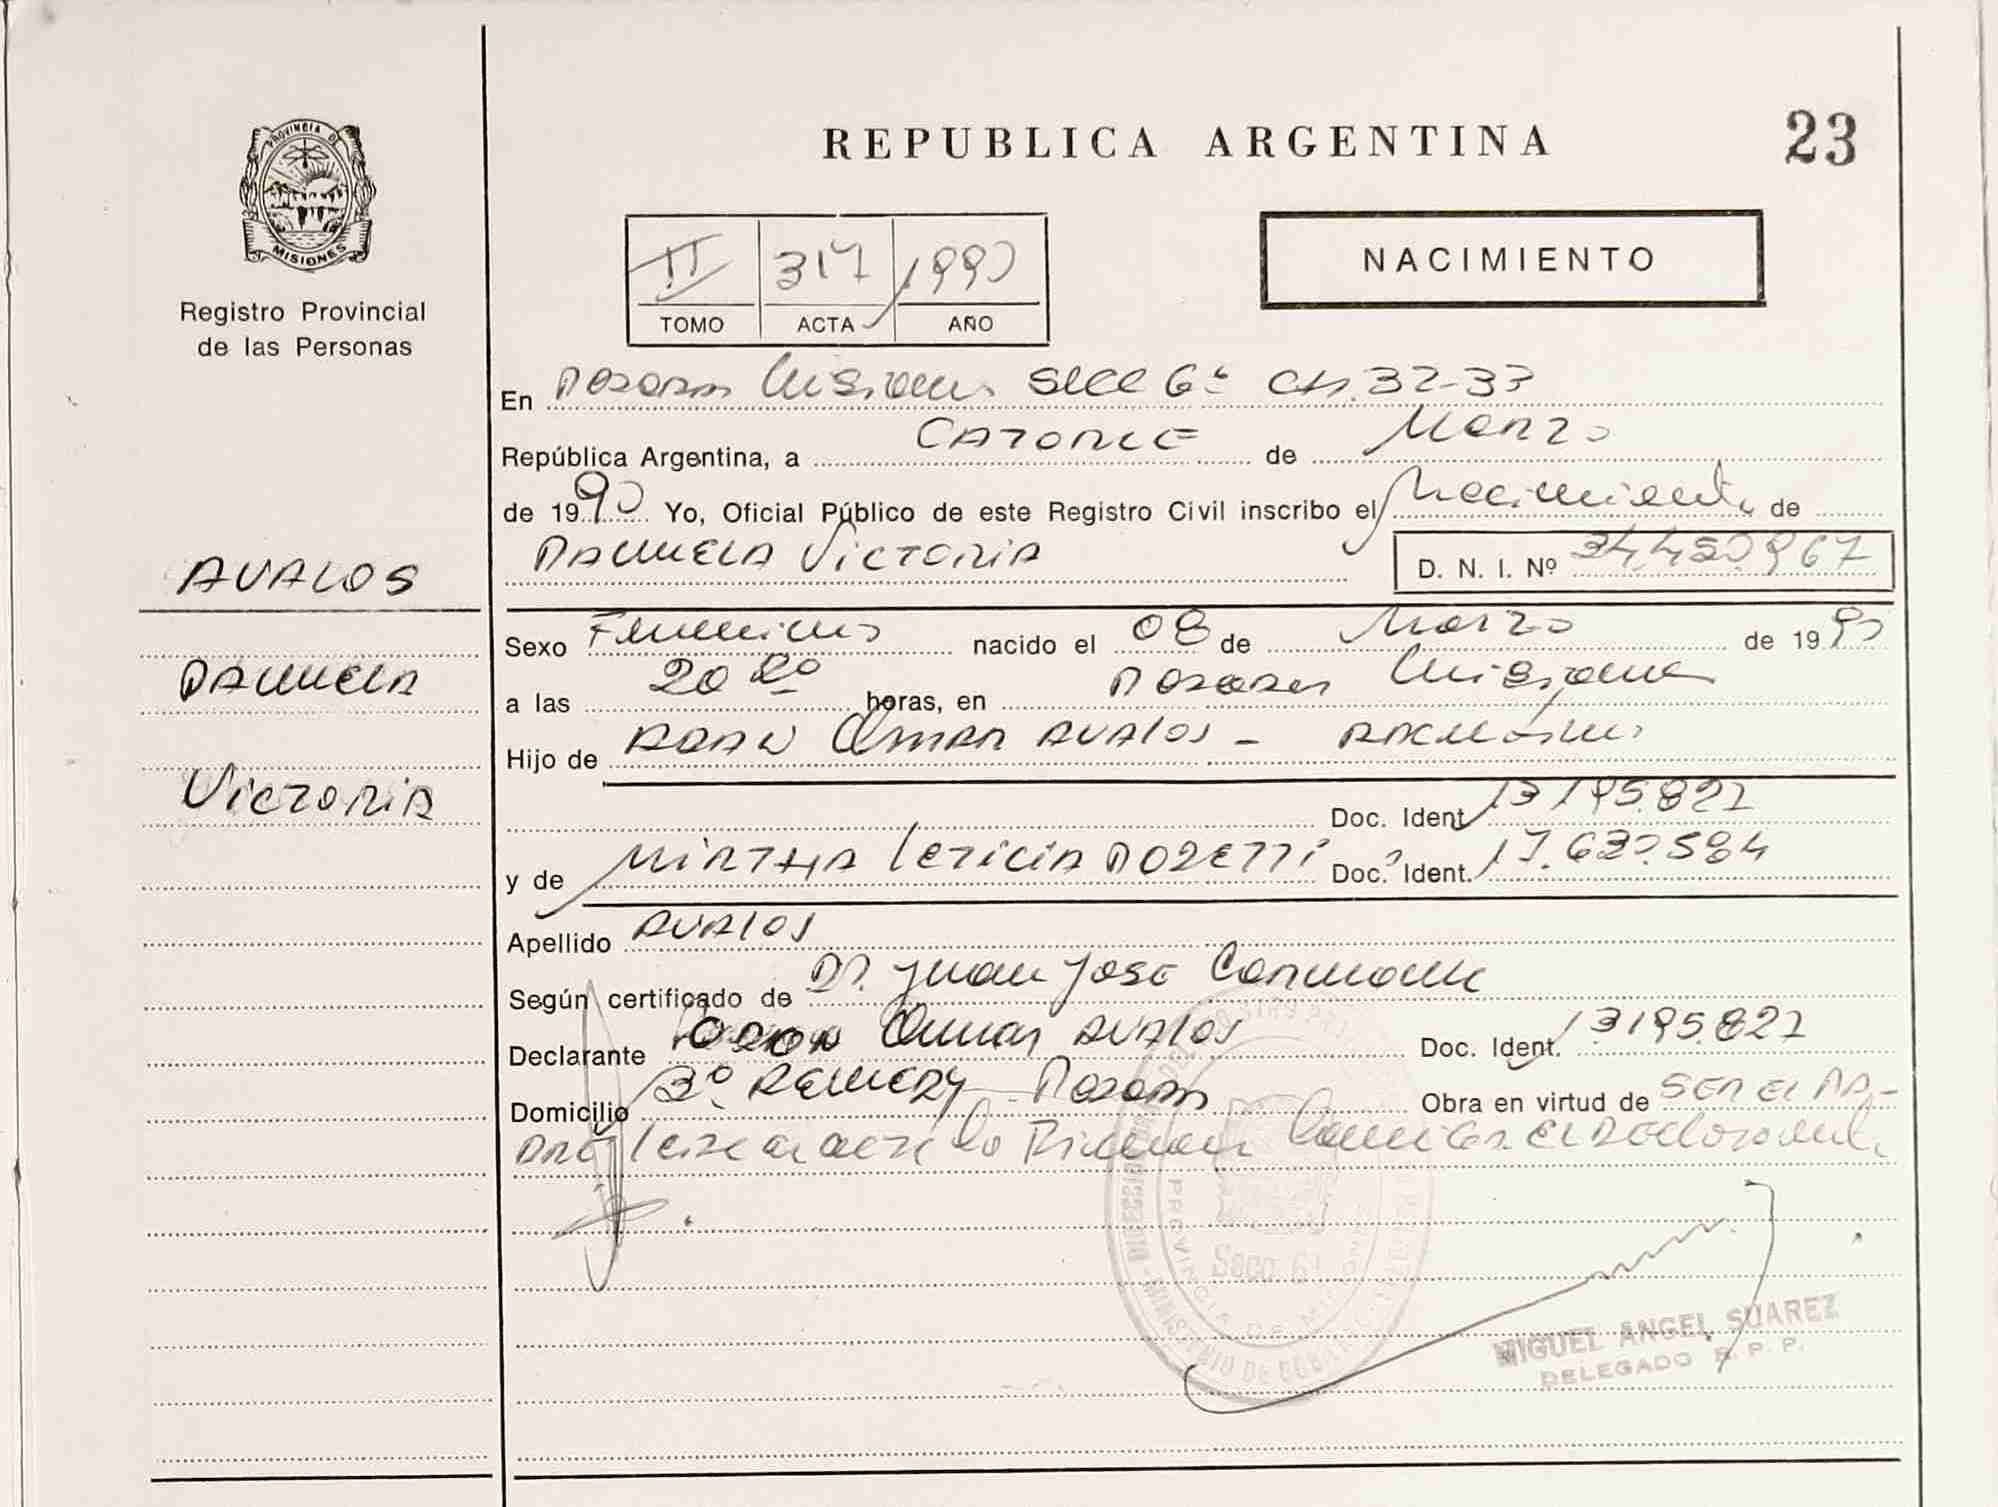 PROVINCIA DE
MISIONES
Registro Provincial
de las Personas
REPUBLICA ARGENTINA
23
II 317 1990
TOMO ACTA AÑO
NACIMIENTO
En Posadas Misiones SECC 6ª CH. 32-33
República Argentina, a CATORCE de Marzo
de 1990 Yo, Oficial Público de este Registro Civil inscribo el Nacimiento de
DANIELA VICTORIA
D. N. I. Nº
AVALOS
DANIELA
VICTORIA
Sexo Femenino nacido el 08 de Marzo de 1990
a las 20 20 horas, en Posadas Misiones
Hijo de ADAN OMAR AVALOS - ARGENTINO
Doc. Ident. 13195.827
y de MIRTHA LETICIA Doc. Ident.
Apellido AVALOS
Según certificado de Dr. Juan Jose
Declarante Adan Omar AVALOS Doc. Ident. 13195.827
Domicilio Posadas Obra en virtud de SER EL PA-
DRE Leida el acta la Firman Conmigo El Declarante
Secc 6ª
PROVINCIA DE MISIONES
MIGUEL ANGEL SUAREZ
DELEGADO R. P. P.